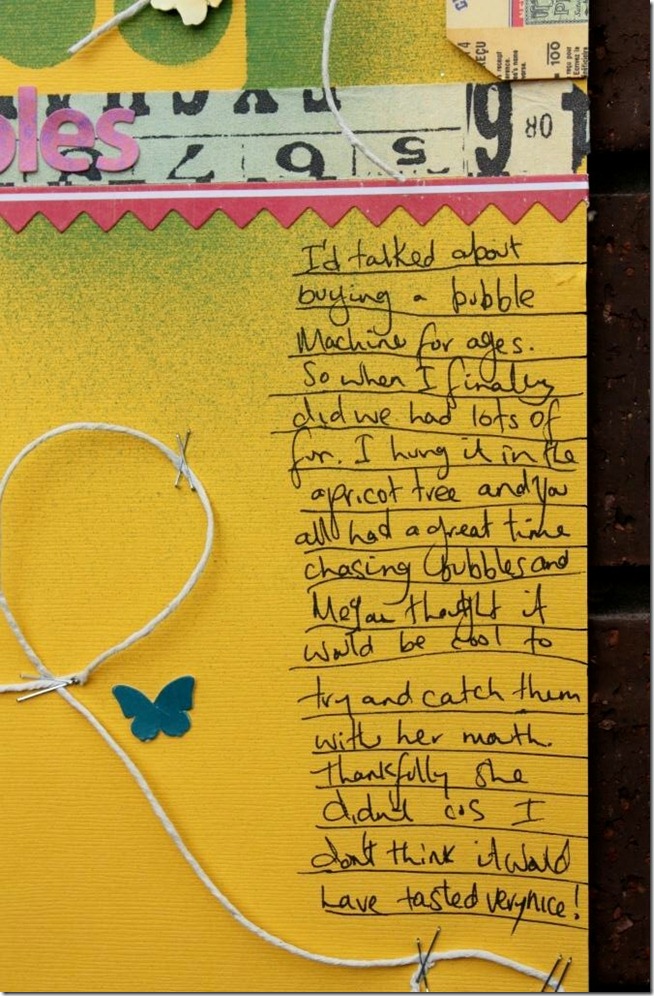 REÇU
100
bles
9
OR
5
6
7
I'd talked about
buying a bubble
Machine for ages.
So when I finally
did we had lots of
fun. I hung it in the
apricot tree and you
all had a great time
chasing bubbles and
Megan thought it
would be cool to
try and catch them
with her mouth.
Thankfully she
didn't cos I
don't think it would
have tasted very nice!